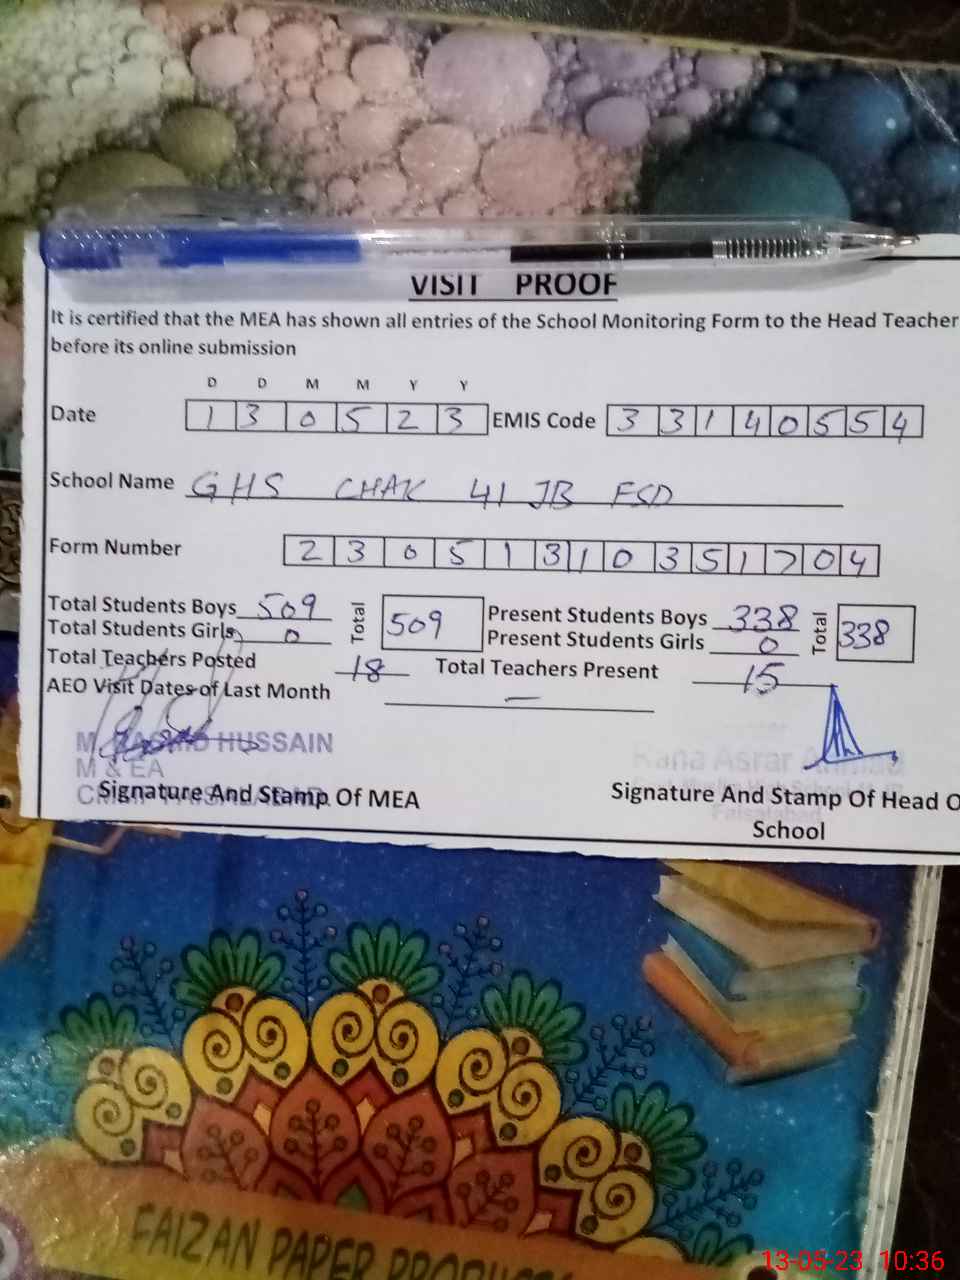 VISIT PROOF
It is certified that the MEA has shown all entries of the School Monitoring Form to the Head Teacher
before its online submission
D D M M Y Y
Date 1 3 0 5 2 3 EMIS Code 3 3 1 4 0 5 5 4
School Name GHS CHAK 41 JB FSD
Form Number 2 3 0 5 1 3 1 0 3 5 1 7 0 4
Total Students Boys 509 Total 509 Present Students Boys 338 Total 338
Total Students Girls 0 Present Students Girls 0
Total Teachers Posted 18 Total Teachers Present 15
AEO Visit Dates of Last Month —
HUSSAIN
M & EA
Rana Asrar Ahmad
Signature And Stamp Of MEA
Signature And Stamp Of Head O
Faisalabad
School
FAIZAN PAPER PRODUCTS
13-05-23 10:36